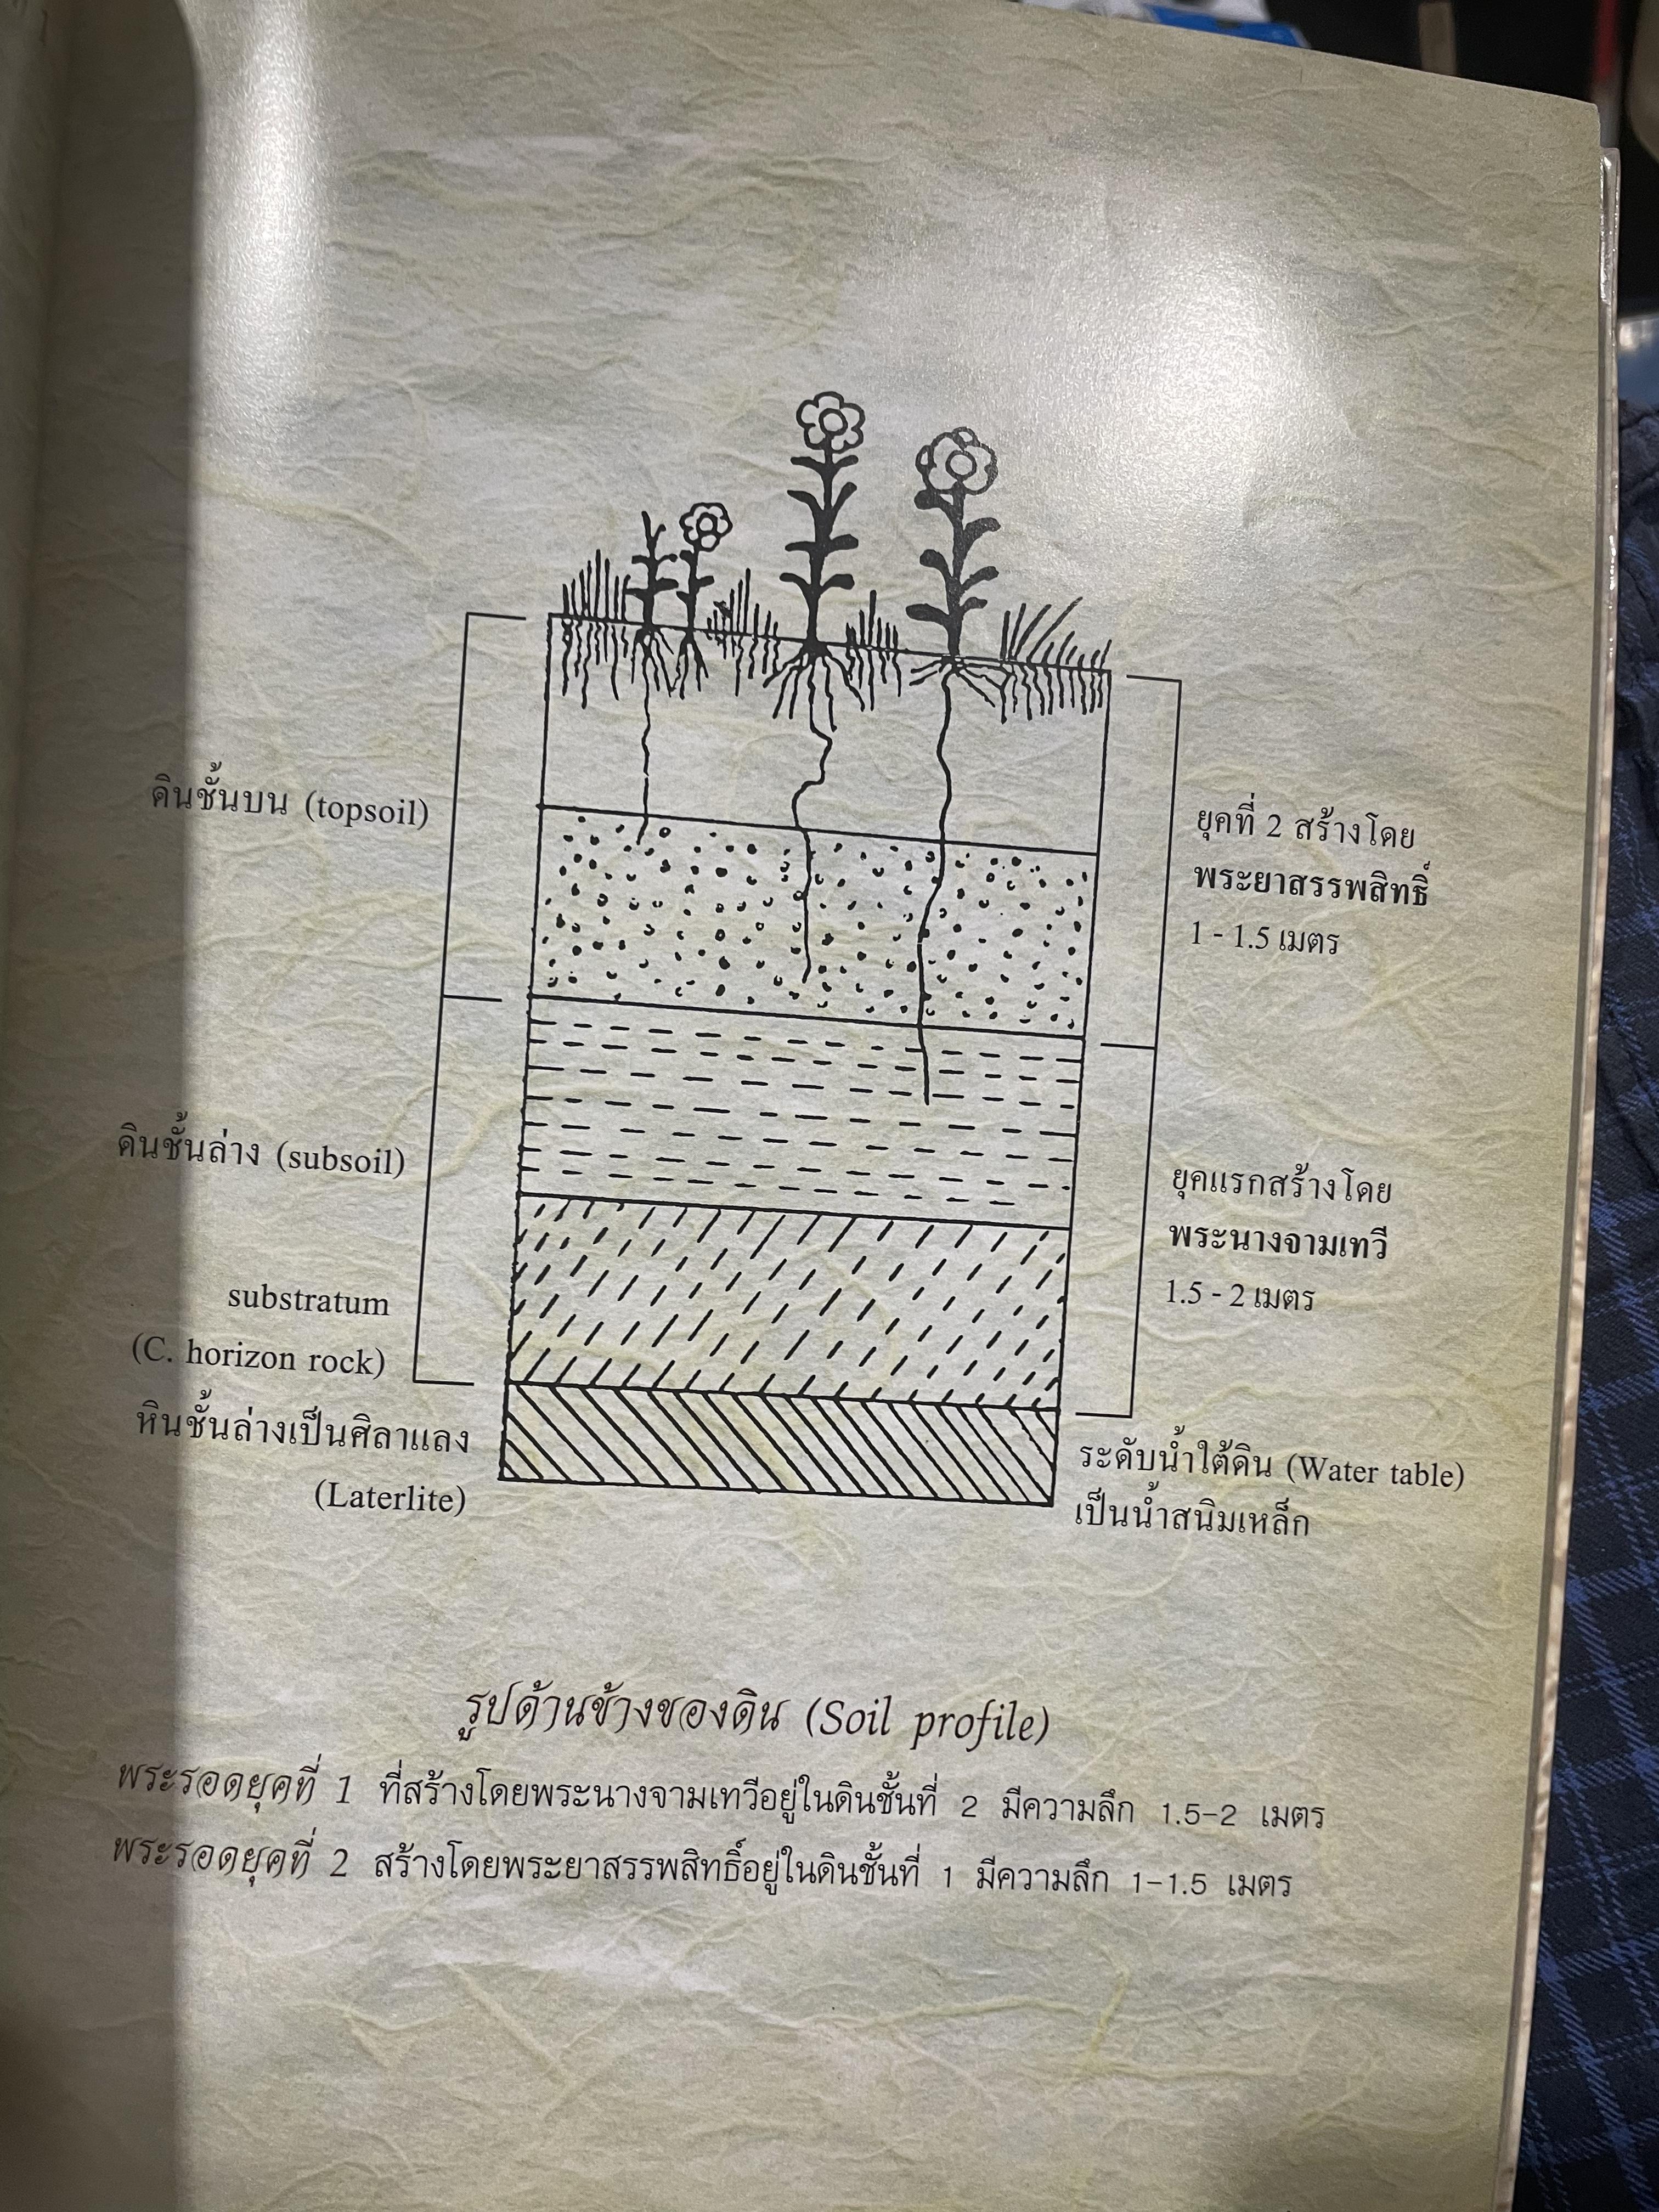 ดินชั้นบน (topsoil)
ยุคที่ 2 สร้างโดย
พระยาสรรพสิทธิ์
1 - 1.5 เมตร
ดินชั้นล่าง (subsoil)
ยุคแรกสร้างโดย
พระนางจามเทวี
1.5 - 2 เมตร
substratum
(C. horizon rock)
หินชั้นล่างเป็นศิลาแลง
(Laterlite)
ระดับน้ำใต้ดิน (Water table)
เป็นน้ำสนิมเหล็ก
รูปด้านข้างของดิน (Soil profile)
พระรอดยุคที่ 1 ที่สร้างโดยพระนางจามเทวีอยู่ในดินชั้นที่ 2 มีความลึก 1.5-2 เมตร
พระรอดยุคที่ 2 สร้างโดยพระยาสรรพสิทธิ์อยู่ในดินชั้นที่ 1 มีความลึก 1-1.5 เมตร